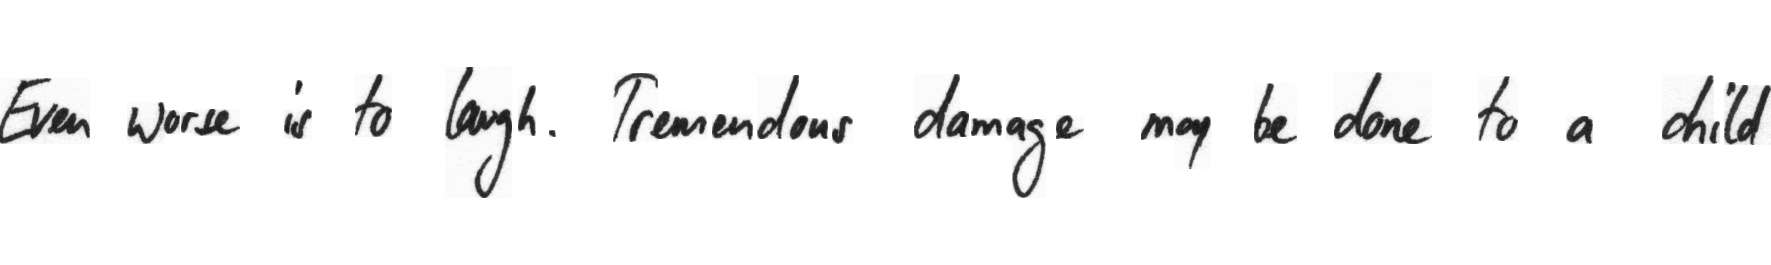 Even worse is to laugh. Tremendous damage may be done to a child